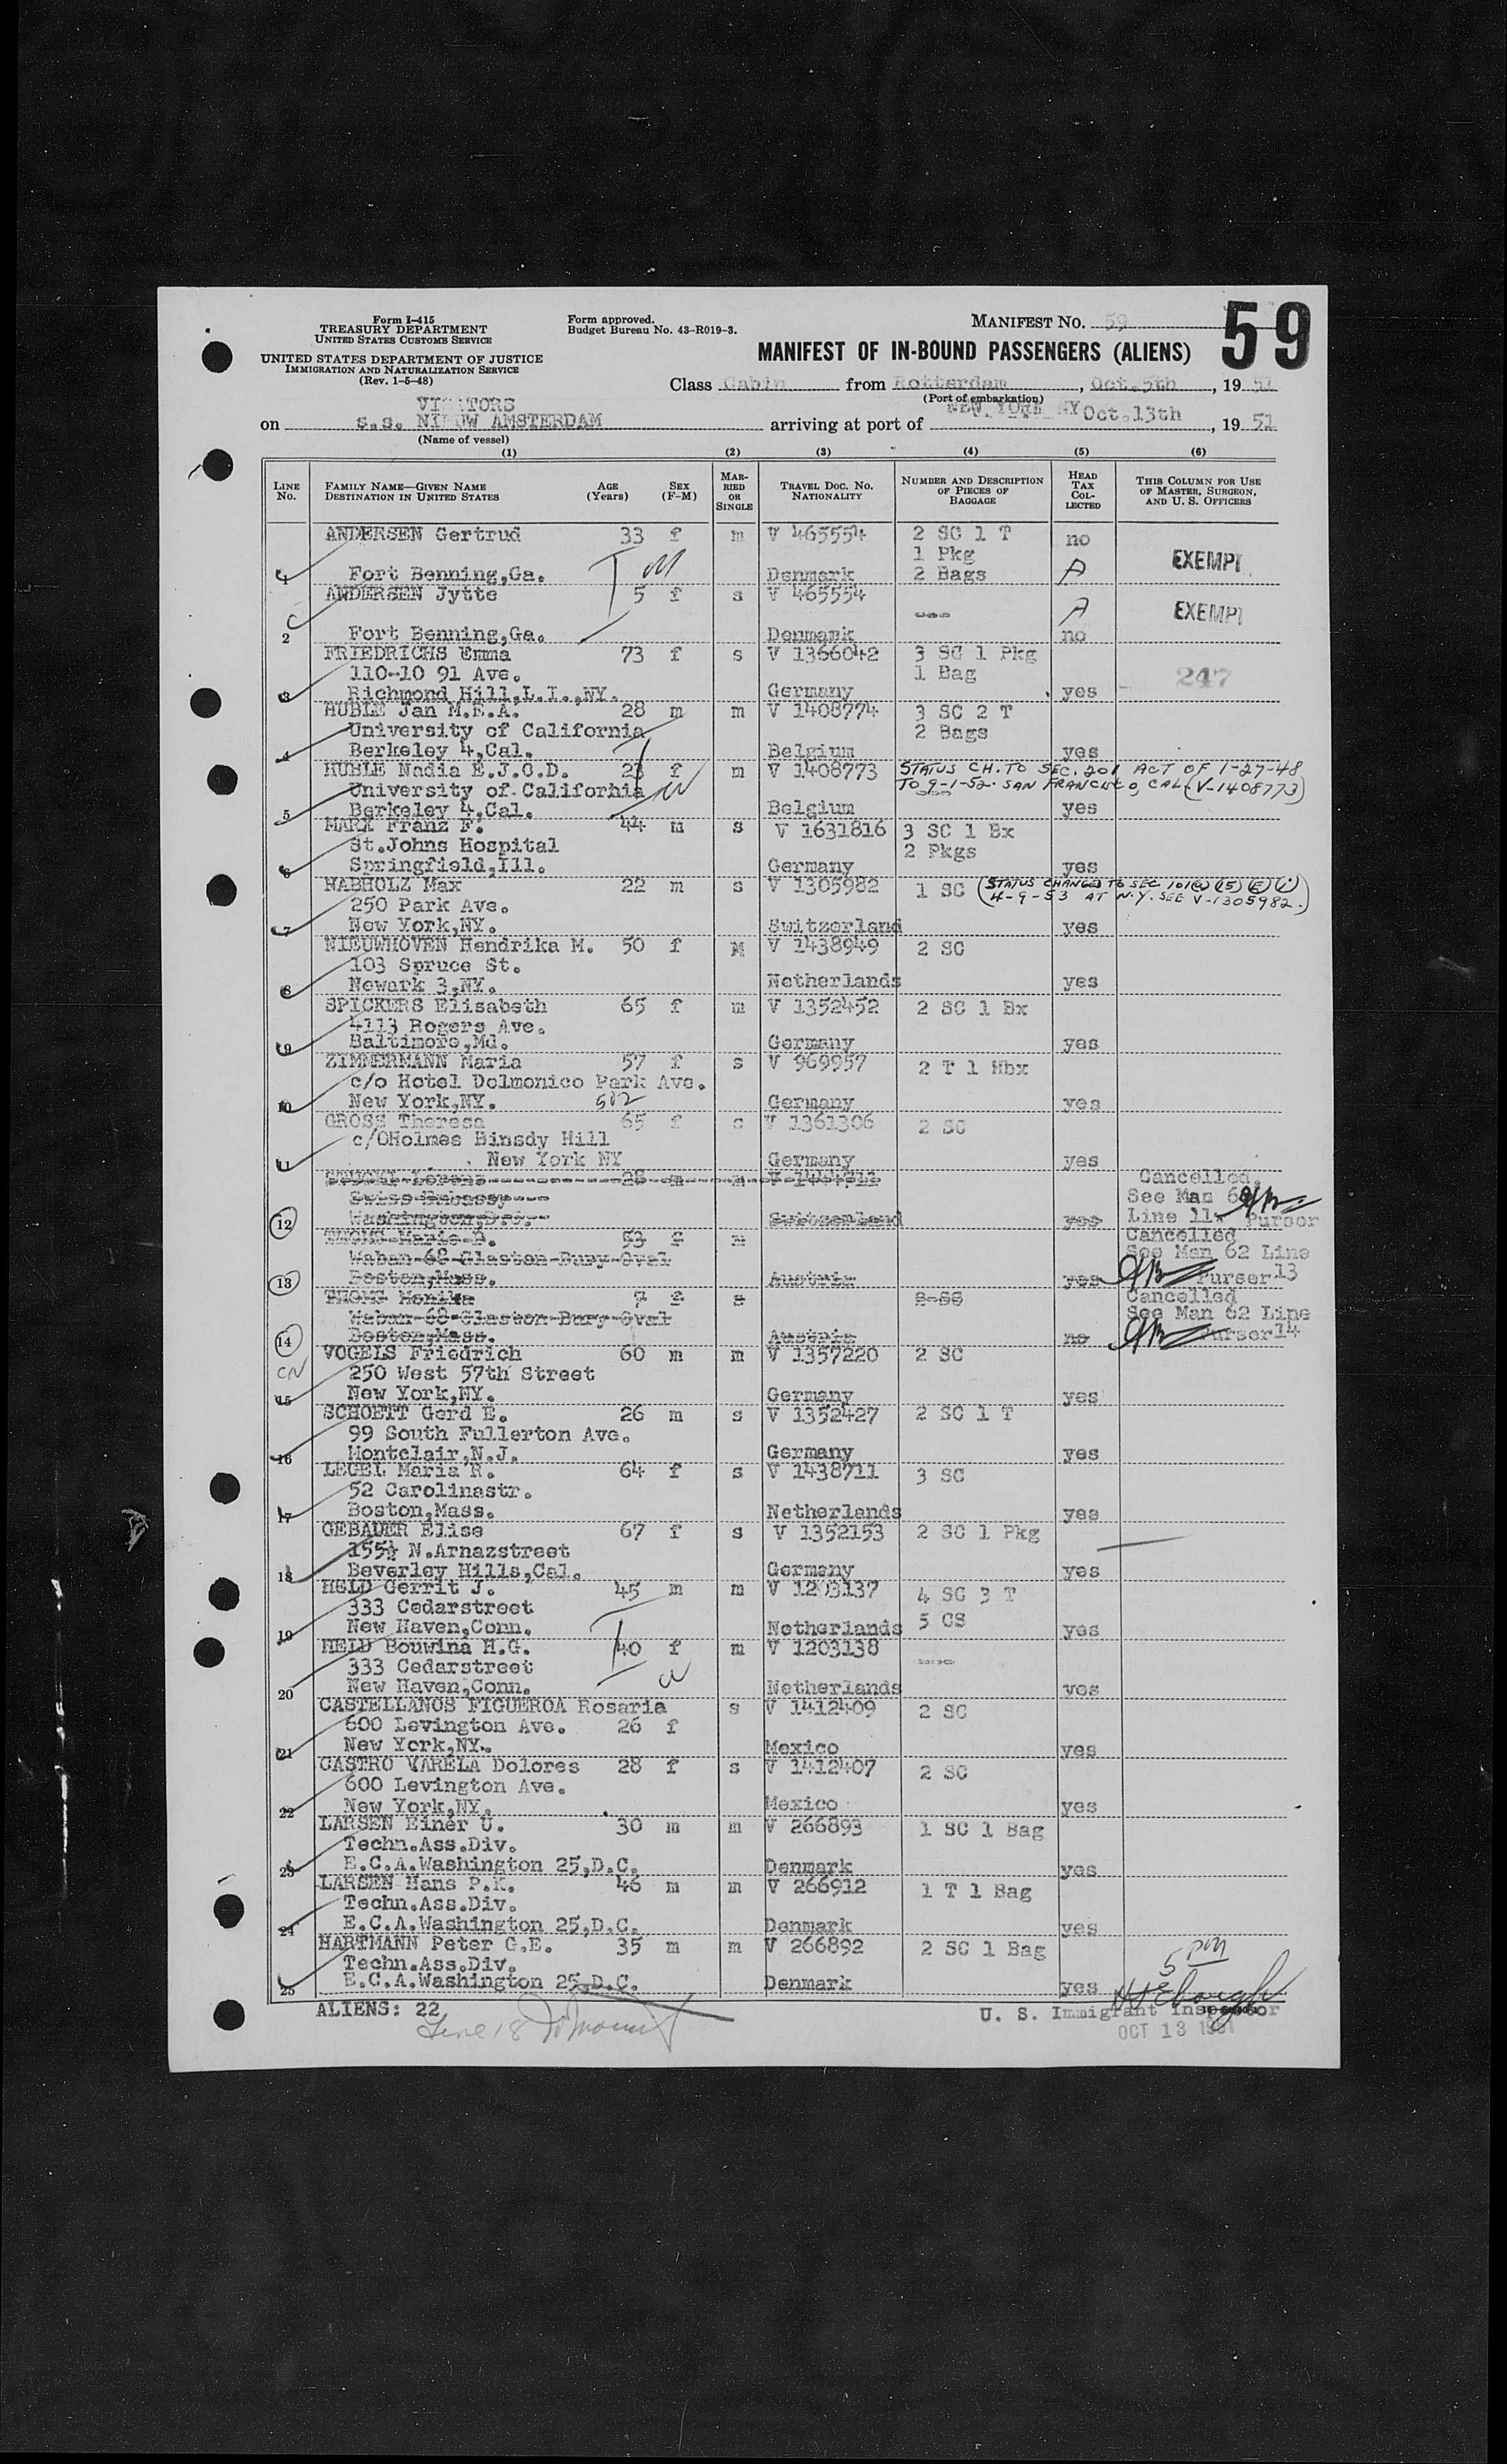 59
Form I-415
TREASURY DEPARTMENT
UNITED STATES CUSTOMS SERVICE
UNITED STATES DEPARTMENT OF JUSTICE
IMMIGRATION AND NATURALIZATION SERVICE
(Rev. 1-5-48)
Form approved.
Budget Bureau No. 43-R019-3.
MANIFEST NO. 59
MANIFEST OF IN-BOUND PASSENGERS (ALIENS)
Class Cabin from Rotterdam, Oct.5th, 19 51
(Port of embarkation)
VISITORS
on s.s. NIEUW AMSTERDAM arriving at port of NEW YORK NY Oct.13th, 19 51
(Name of vessel)
(1) (2) (3) (4) (5) (6)
LINE No. FAMILY NAME—GIVEN NAME DESTINATION IN UNITED STATES AGE (Years) SEX (F-M) MARRIED OR SINGLE TRAVEL DOC. NO. NATIONALITY NUMBER AND DESCRIPTION OF PIECES OF BAGGAGE HEAD TAX COLLECTED THIS COLUMN FOR USE OF MASTER, SURGEON, AND U. S. OFFICERS
ANDERSEN Gertrud 33 f m V 465554 2 SC 1 T no
1 Pkg EXEMPT
1 Fort Benning,Ga. Denmark 2 Bags A
ANDERSEN Jytte 5 f s V 465554 --- A EXEMPT
2 Fort Benning,Ga. Denmark no
FRIEDRICHS Emma 73 f s V 1366042 3 SC 1 Pkg
110-10 91 Ave. 1 Bag 247
3 Richmond Hill,L.I.,NY. Germany yes
HUBLE Jan M.E.A. 28 m m V 1408774 3 SC 2 T
University of California 2 Bags
4 Berkeley 4,Cal. Belgium yes
HUBLE Nadia E.J.O.D. 23 f m V 1408773 STATUS CH. TO SEC. 201 ACT OF 1-27-48
University of California TO 9-1-52. SAN FRANCISCO, CAL. (V-1408773)
5 Berkeley 4,Cal. Belgium yes
MARX Franz F. 44 m s V 1631816 3 SC 1 Bx
St.Johns Hospital 2 Pkgs
6 Springfield,Ill. Germany yes
NABHOLZ Max 22 m s V 1305982 1 SC (STATUS CHANGED TO SEC 101(a)(15)(E)(i)
250 Park Ave. 4-9-53 AT N.Y. SEE V-1305982.)
7 New York,NY. Switzerland yes
NIEUWHOVEN Hendrika M. 50 f M V 1438949 2 SC
103 Spruce St.
8 Newark 3,NY. Netherlands yes
SPICKERS Elisabeth 65 f m V 1352452 2 SC 1 Bx
4113 Rogers Ave.
9 Baltimore,Md. Germany yes
ZIMMERMANN Maria 57 f s V 969957 2 T 1 Hbx
c/o Hotel Delmonico Park Ave.
10 New York,NY. 502 Germany yes
GROSS Theresa 65 f s V 1361306 2 SC
c/OHolmes Binsdy Hill
11 New York NY Germany yes
Lorenz 28 m Cancelled.
Swiss Embassy See Man 62
12 Washington,D.C. Switzerland yes Line 11 Purser
THOMS Maria B. 53 f m Cancelled
Waban 68 Glaston Bury Oval See Man 62 Line
13 Boston,Mass. Austria yes Purser 13
THOMS Monika 7 f s 2 SC Cancelled
Waban 68 Glaston Bury Oval See Man 62 Line
14 Boston,Mass. Austria no Purser 14
VOGELS Friedrich 60 m m V 1357220 2 SC
CN 250 West 57th Street
15 New York,NY. Germany yes
SCHOETT Gerd E. 26 m s V 1352427 2 SC 1 T
99 South Fullerton Ave.
16 Montclair,N.J. Germany yes
LEGEL Maria R. 64 f s V 1438711 3 SC
52 Carolinastr.
17 Boston,Mass. Netherlands yes
GEBAUER Elise 67 f s V 1352153 2 SC 1 Pkg
155½ N.Arnazstreet
18 Beverley Hills,Cal. Germany yes
HELD Gerrit J. 45 m m V 1203137 4 SC 3 T
333 Cedarstreet 5 CS
19 New Haven,Conn. Netherlands yes
HELD Bouwina H.G. 40 f m V 1203138 ----
333 Cedarstreet
20 New Haven,Conn. Netherlands yes
CASTELLANOS FIGUEROA Rosaria s V 1412409 2 SC
600 Levington Ave. 26 f
21 New York,NY. Mexico yes
CASTRO VARELA Dolores 28 f s V 1412407 2 SC
600 Levington Ave.
22 New York,NY. Mexico yes
LARSEN Einer U. 30 m m V 266893 1 SC 1 Bag
Techn.Ass.Div.
23 E.C.A.Washington 25,D.C. Denmark yes
LARSEN Hans P.K. 46 m m V 266912 1 T 1 Bag
Techn.Ass.Div.
24 E.C.A.Washington 25,D.C. Denmark yes
HARTMANN Peter G.E. 35 m m V 266892 2 SC 1 Bag
Techn.Ass.Div. 5 PM
25 E.C.A.Washington 25,D.C. Denmark yes
ALIENS: 22 U. S. Immigrant Inspector
Line 18
OCT 13 1951